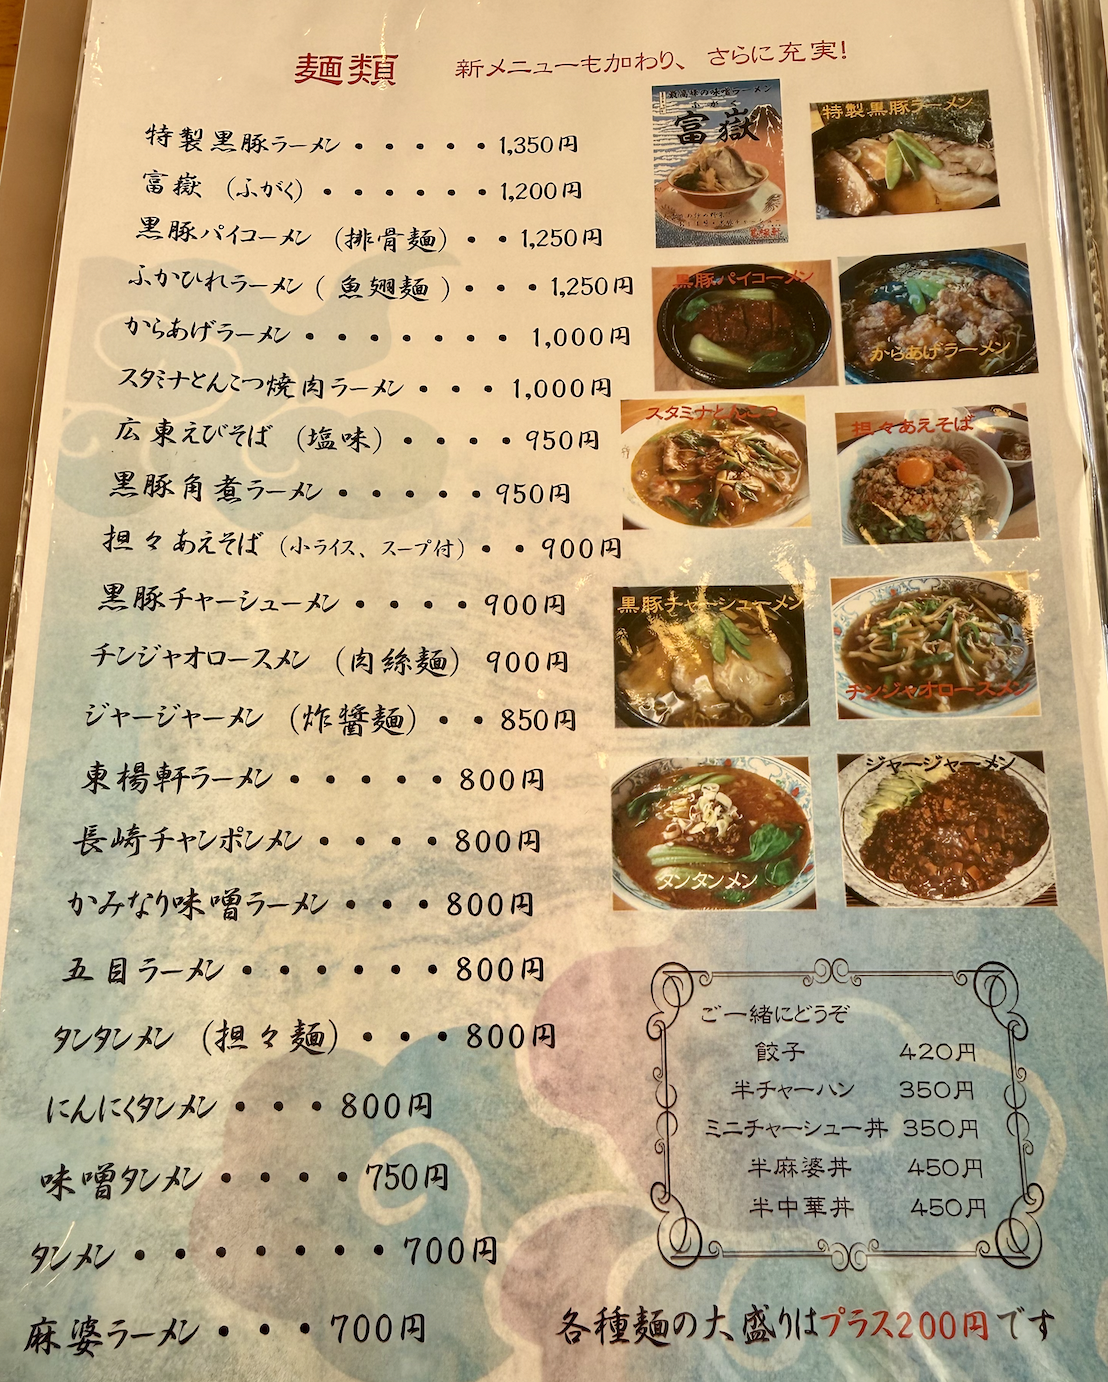 麺類 新メニューも加わり、さらに充実!
特製黒豚ラーメン・・・・・1,350円
富嶽 (ふがく)・・・・・・1,200円
黒豚パイコーメン (排骨麺)・・1,250円
ふかひれラーメン(魚翅麺)・・・1,250円
からあげラーメン・・・・・・・1,000円
スタミナとんこつ焼肉ラーメン・・・1,000円
広東えびそば (塩味)・・・・950円
黒豚角煮ラーメン・・・・・950円
担々あえそば (小ライス、スープ付)・・900円
黒豚チャーシューメン・・・・900円
チンジャオロースメン (肉絲麺) 900円
ジャージャーメン (炸醤麺)・・850円
東楊軒ラーメン・・・・・800円
長崎チャンポンメン・・・・800円
かみなり味噌ラーメン・・・800円
五目ラーメン・・・・・・800円
タンタンメン (担々麺)・・・800円
にんにくタンメン・・・800円
味噌タンメン・・・・750円
タンメン・・・・・・・700円
麻婆ラーメン・・・700円
最高峰の味噌ラーメン
ふがく
富嶽
特製黒豚ラーメン
黒豚パイコーメン
からあげラーメン
スタミナとんこつ
担々あえそば
黒豚チャーシューメン
チンジャオロースメン
タンタンメン
ジャージャーメン
ご一緒にどうぞ
餃子 420円
半チャーハン 350円
ミニチャーシュー丼 350円
半麻婆丼 450円
半中華丼 450円
各種麺の大盛りはプラス200円です